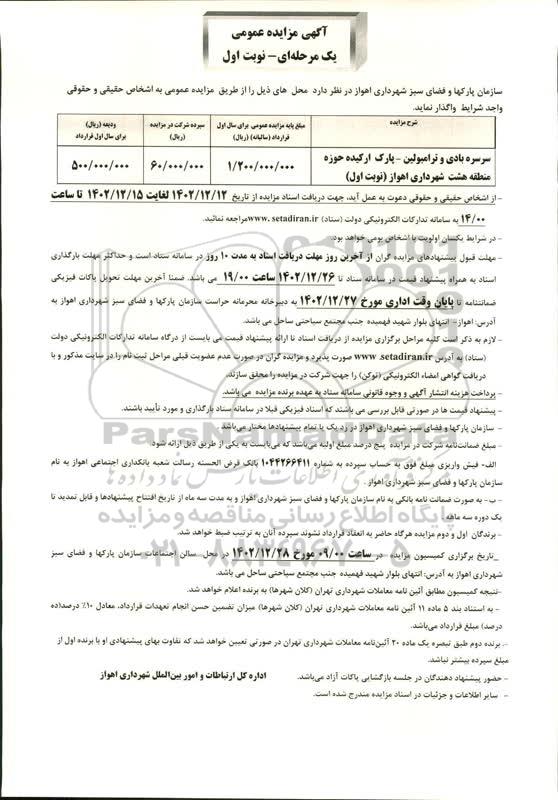 آگهی مزایده عمومی
یک مرحله‌ای - نوبت اول
سازمان پارکها و فضای سبز شهرداری اهواز در نظر دارد محل های ذیل را از طریق مزایده عمومی به اشخاص حقیقی و حقوقی
واجد شرایط واگذار نماید.
شرح مزایده
مبلغ پایه مزایده عمومی برای سال اول
قرارداد (سالیانه) (ریال)
سپرده شرکت در مزایده
(ریال)
ودیعه (ریال)
برای سال اول قرارداد
سرسره بادی و ترامپولین - پارک ارکیده حوزه
منطقه هشت شهرداری اهواز (نوبت اول)
۱/۲۰۰/۰۰۰/۰۰۰
۶۰/۰۰۰/۰۰۰
۵۰۰/۰۰۰/۰۰۰
- از اشخاص حقیقی و حقوقی دعوت به عمل آید، جهت دریافت اسناد مزایده از تاریخ ۱۴۰۲/۱۲/۱۲ لغایت ۱۴۰۲/۱۲/۱۵ تا ساعت
۱۴/۰۰ به سامانه تدارکات الکترونیکی دولت (ستاد) www.setadiran.ir مراجعه نمائید.
- در شرایط یکسان اولویت با اشخاص بومی خواهد بود.
- مهلت قبول پیشنهادهای مزایده گران از آخرین روز مهلت دریافت اسناد به مدت ۱۰ روز در سامانه ستاد است و حداکثر مهلت بارگذاری
اسناد به همراه پیشنهاد قیمت در سامانه ستاد تا ۱۴۰۲/۱۲/۲۶ ساعت ۱۹/۰۰ می باشد. ضمنا آخرین مهلت تحویل پاکات فیزیکی
ضمانتنامه تا پایان وقت اداری مورخ ۱۴۰۲/۱۲/۲۷ به دبیرخانه محرمانه حراست سازمان پارکها و فضای سبز شهرداری اهواز به
آدرس: اهواز- انتهای بلوار شهید فهمیده جنب مجتمع سیاحتی ساحل می باشد.
- لازم به ذکر است کلیه مراحل برگزاری مزایده از دریافت اسناد تا ارائه پیشنهاد قیمت می بایست از درگاه سامانه تدارکات الکترونیکی دولت
(ستاد) به آدرس www.setadiran.ir صورت پذیرد و مزایده گران در صورت عدم عضویت قبلی مراحل ثبت نام را در سایت مذکور و با
دریافت گواهی امضاء الکترونیکی (توکن) را جهت شرکت در مزایده را محقق سازند.
- پرداخت هزینه انتشار آگهی و وجوه قانونی سامانه ستاد به عهده برنده مزایده می باشد.
- پیشنهاد قیمت ها در صورتی قابل بررسی می باشند که اسناد فیزیکی قبلا در سامانه ستاد بارگذاری و مورد تأیید باشند.
- سازمان پارکها و فضای سبز شهرداری اهواز در رد یک یا تمام پیشنهادها مختار می‌باشد.
- مبلغ ضمانت‌نامه شرکت در مزایده پنج درصد مبلغ اولیه می‌باشد که می‌بایست به یکی از طریق ذیل ارائه شود.
الف- فیش واریزی مبلغ فوق به حساب سپرده به شماره ۱۰۴۴۲۶۶۴۱۱ بانک قرض الحسنه رسالت شعبه بانکداری اجتماعی اهواز به نام
سازمان پارکها و فضای سبز شهرداری اهواز.
- ب - به صورت ضمانت نامه بانکی به نام سازمان پارکها و فضای سبز شهرداری اهواز و به مدت سه ماه از تاریخ افتتاح پیشنهادها و قابل تمدید تا
یک دوره سه ماهه.
- برندگان اول و دوم مزایده هرگاه حاضر به انعقاد قرارداد نشوند سپرده آنان به ترتیب ضبط خواهد شد.
_تاریخ برگزاری کمیسیون مزایده در ساعت ۰۹/۰۰ مورخ ۱۴۰۲/۱۲/۲۸ در محل سالن اجتماعات سازمان پارکها و فضای سبز
شهرداری اهواز به آدرس: انتهای بلوار شهید فهمیده جنب مجتمع سیاحتی ساحل می باشد.
-نتیجه کمیسیون مطابق آئین نامه معاملات شهرداری تهران (کلان شهرها) به برنده اعلام خواهد شد.
- به استناد بند ۵ ماده ۱۱ آئین نامه معاملات شهرداری تهران (کلان شهرها) میزان تضمین حسن انجام تعهدات قرارداد، معادل ۱۰٪ درصد(ده
درصد) مبلغ قرارداد می‌باشد.
-. برنده دوم طبق تبصره یک ماده ۲۰ آئین‌نامه معاملات شهرداری تهران در صورتی تعیین خواهد شد که تفاوت بهای پیشنهادی او با برنده اول از
مبلغ سپرده بیشتر نباشد.
- حضور پیشنهاد دهندگان در جلسه بازگشایی پاکات آزاد می‌باشد.
- سایر اطلاعات و جزئیات در اسناد مزایده مندرج شده است.
اداره کل ارتباطات و امور بین‌الملل شهرداری اهواز